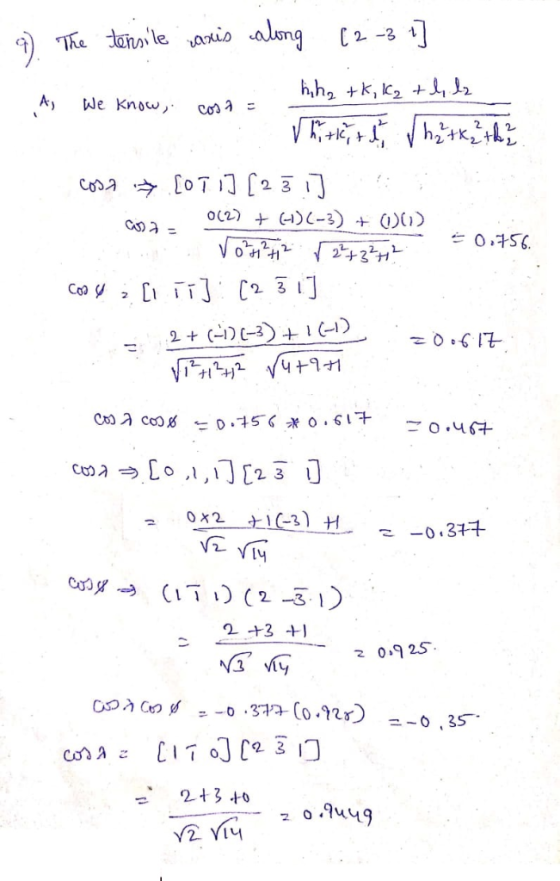 9) The tensile axis along [2 -3 1]
A) We know, cos λ = h₁h₂ + k₁k₂ + l₁l₂ / √h₁²+k₁²+l₁² √h₂²+k₂²+l₂²
cos λ ⇒ [0 1̄ 1] [2 3̄ 1]
cos λ = 0(2) + (-1)(-3) + (1)(1) / √0²+1²+1² √2²+3²+1² = 0.756.
cos φ = [1 1̄ 1̄] [2 3̄ 1]
= 2 + (-1)(-3) + 1(-1) / √1²+1²+1² √4+9+1 = 0.617
cos λ cos φ = 0.756 * 0.617 = 0.467
cos λ ⇒ [0,1,1] [2 3̄ 1]
= 0×2 + 1(-3) +1 / √2 √14 = -0.377
cos φ → (1 1̄ 1) (2 -3̄ 1)
= 2 +3 +1 / √3 √14 = 0.925.
cos λ cos φ = -0.377 (0.925) = -0.35
cos λ = [1 1̄ 0] [2 3̄ 1]
= 2+3+0 / √2 √14 = 0.9449